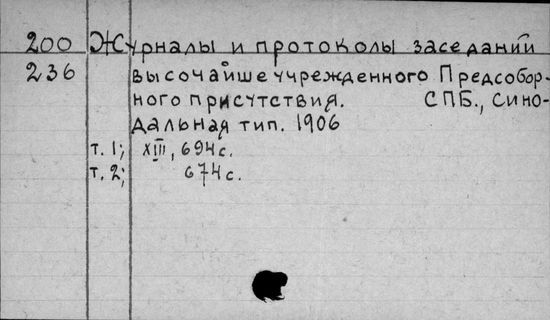 200 Журналы и протоколы заседаний
236 высочайше учрежденного Предсобор-
ного присутствия. СПБ., Сино-
дальная тип. 1906
т. 1; XIII, 694 с.
т. 2; 674 с.